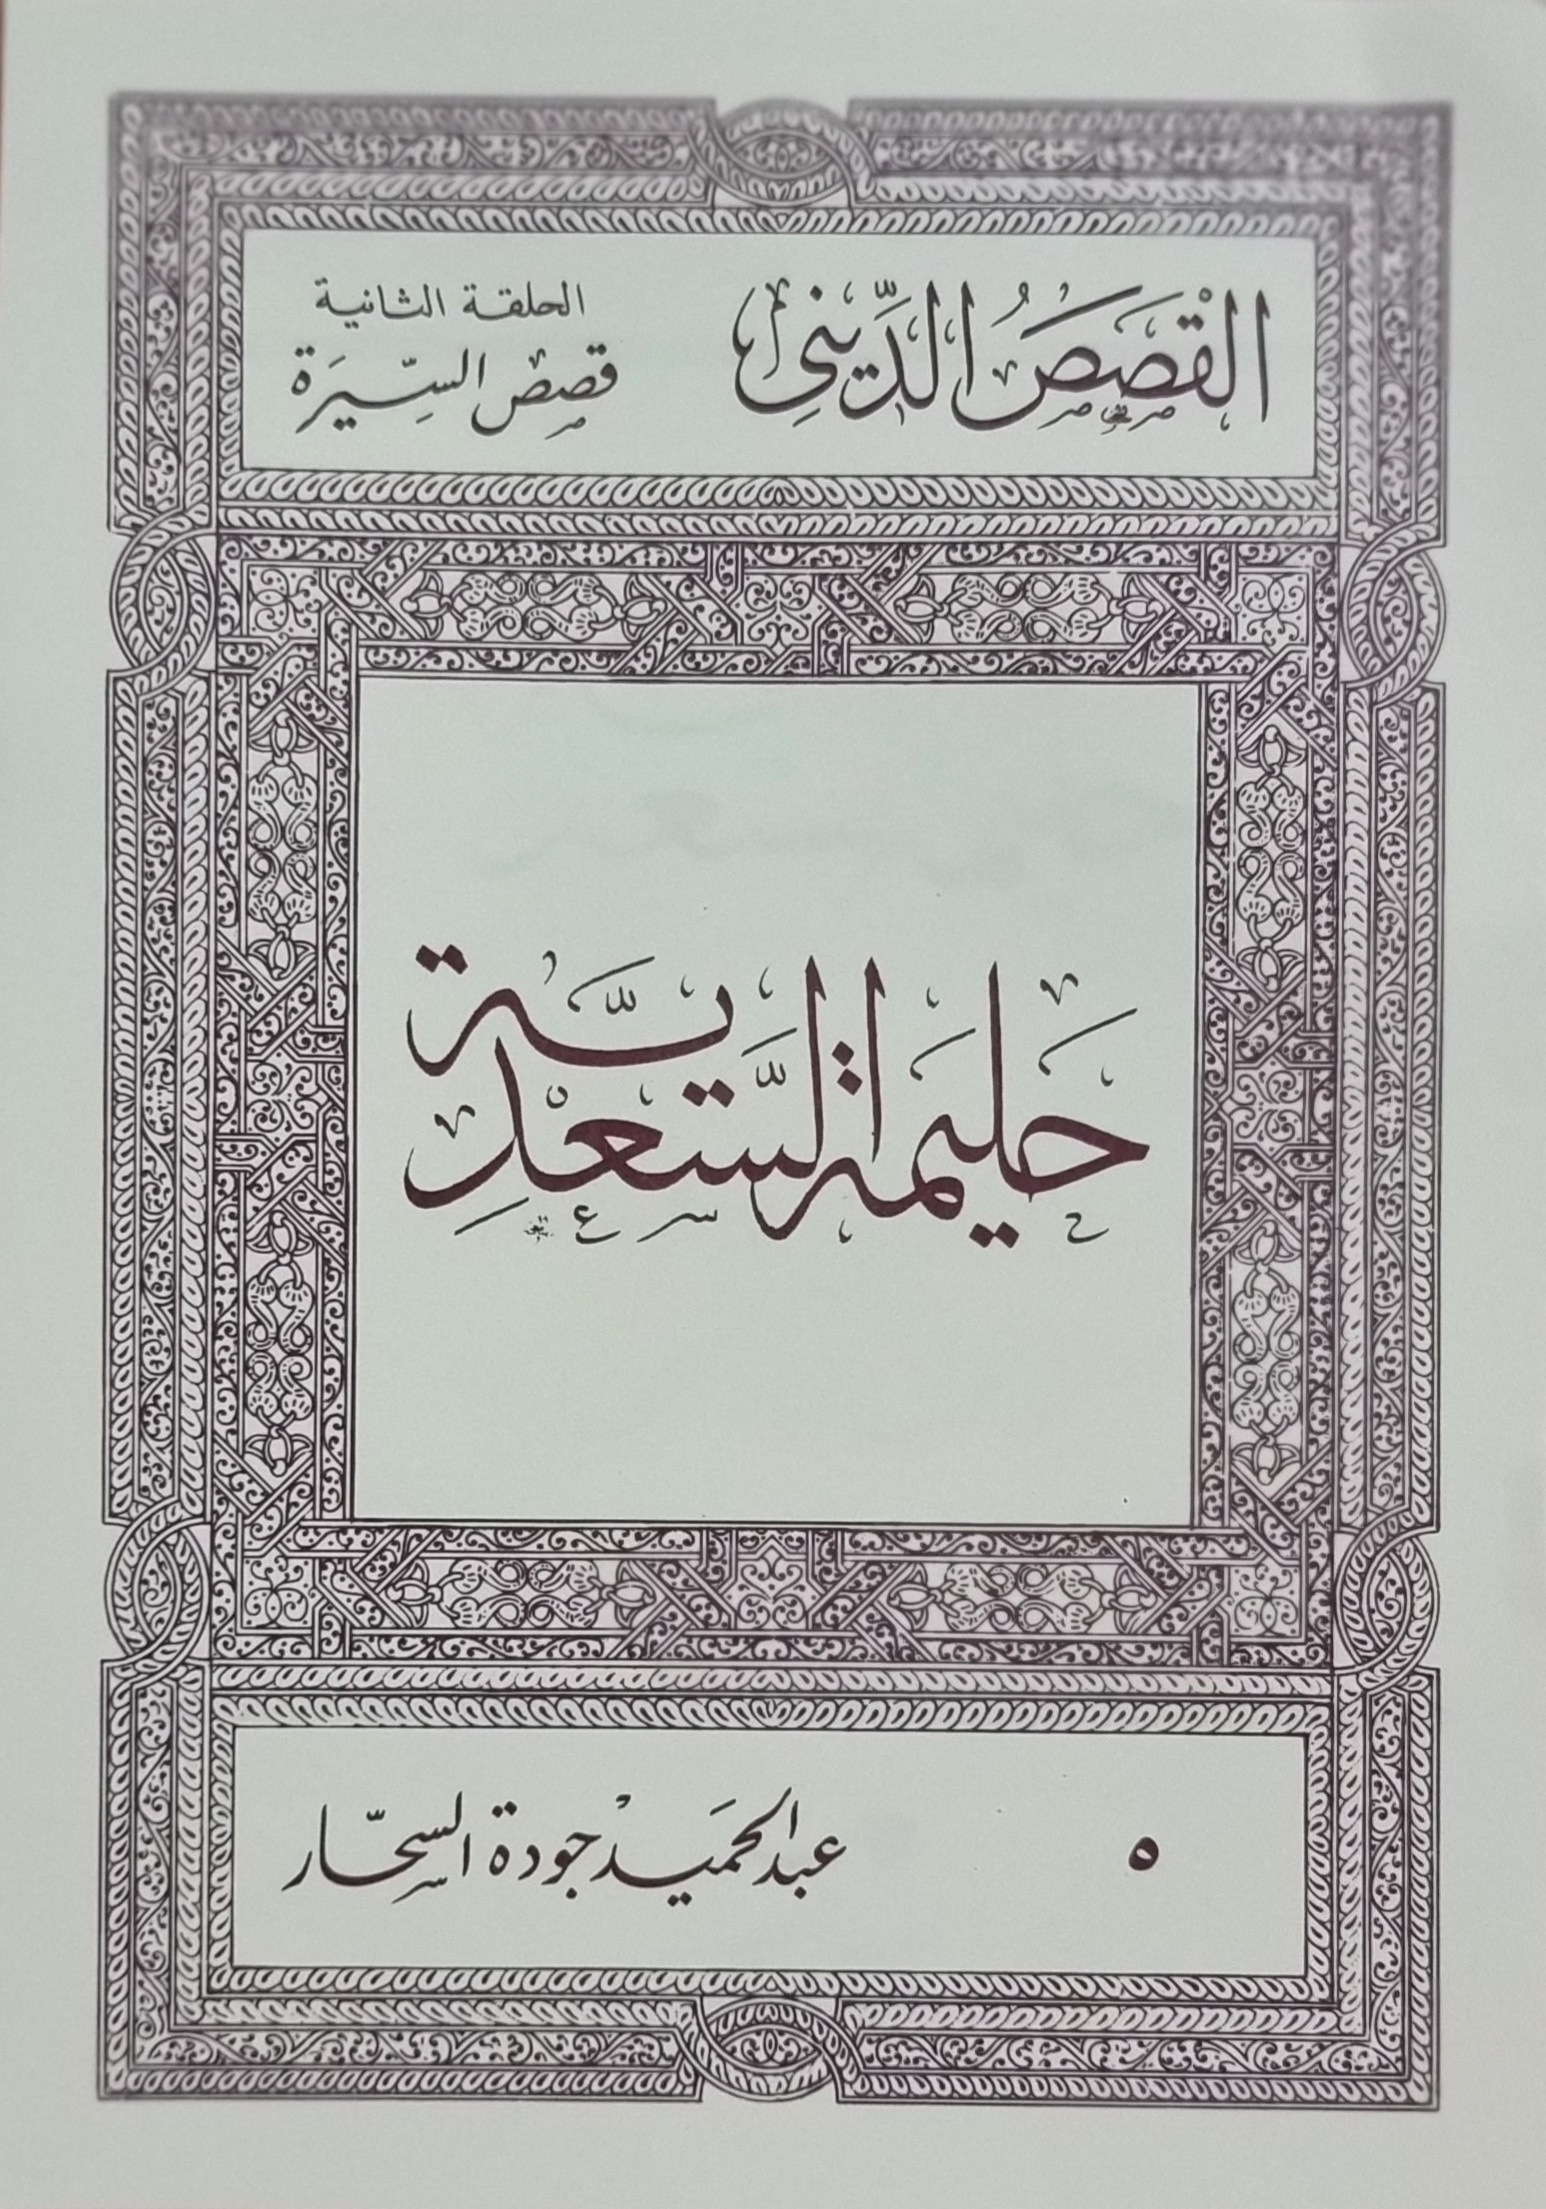 القَصَصُ الدِّينِى
الحلقة الثانية
قصص السِّيرَة
حَليمَة السَّعْدِيَّة
٥
عبد الحَميد جودة السحّار